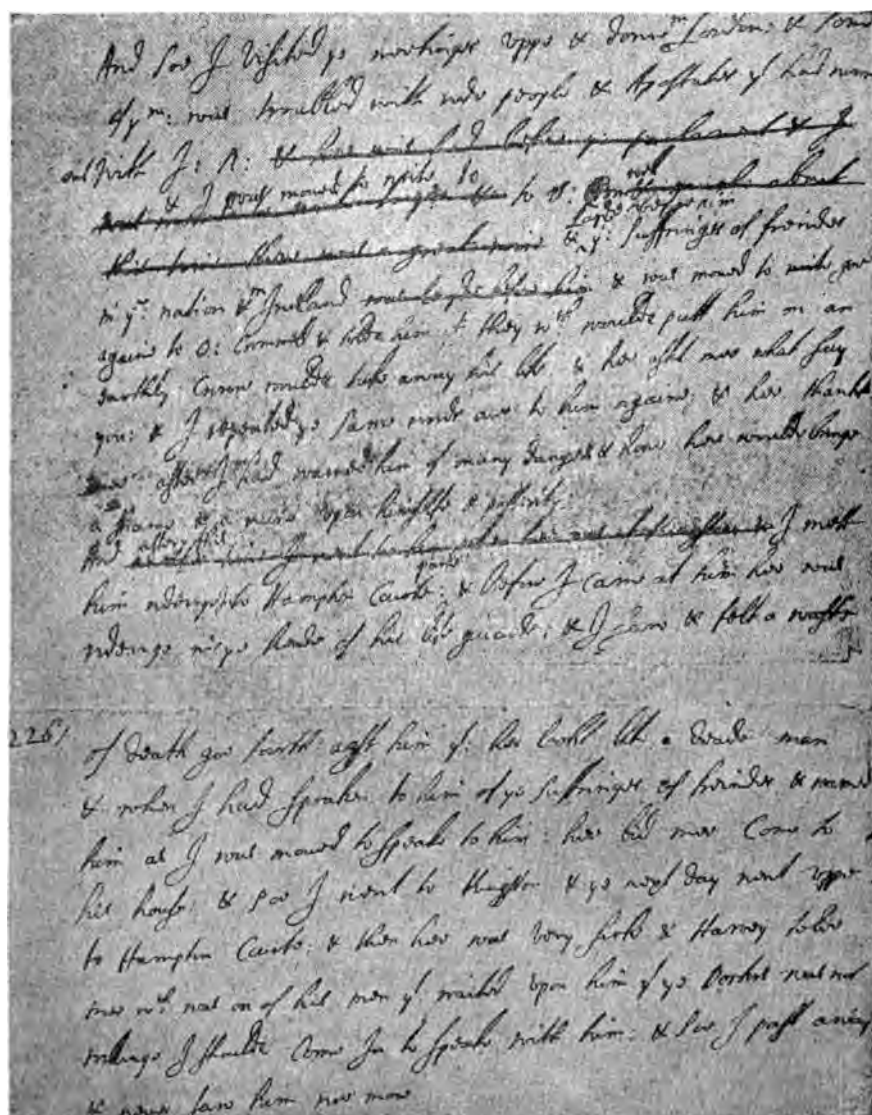 And soe I visited ye meetinges uppe & doune in London: & some
of ym: was troubled with rude people & Apostates yt had runn
out with J: N:
& I was moved to write to to O: & laide before him
this time there was a great & ye: suffringes of freindes
in ye: nation & in Ireland was layde before him & was moved to write
againe to O: Crumwell & tolde him yt they wch woulde putt him on an
earthly Crowne woulde take away his life & hee askt mee what say
you: & I repeated ye same words over to him againe: & hee thankt
mee after I had warned him of many dangers & how hee woulde bringe
a shame & a ruine upon himselfe & posterity.
And after this I mett
him ridinge into Hampton Courte parke: & before I came at him hee was
ridinge in ye heade of his life guarde: & I saw & felt a waffe
226/
of death goe foarth agst him yt: hee lookt like a deade man
& when I had spoaken to him of ye suffringes of freindes & warned
him as I was moved to speake to him: hee bid mee Come to
his house: & soe I went to Kingston & ye next day went uppe
to Hampton Courte: & then hee was very sicke & Harvey tolde
mee wch was on of his men yt: waited upon him yt ye Doctors was not
willinge I shoulde Come In to speake with him: & soe I past away
& never saw him noe more